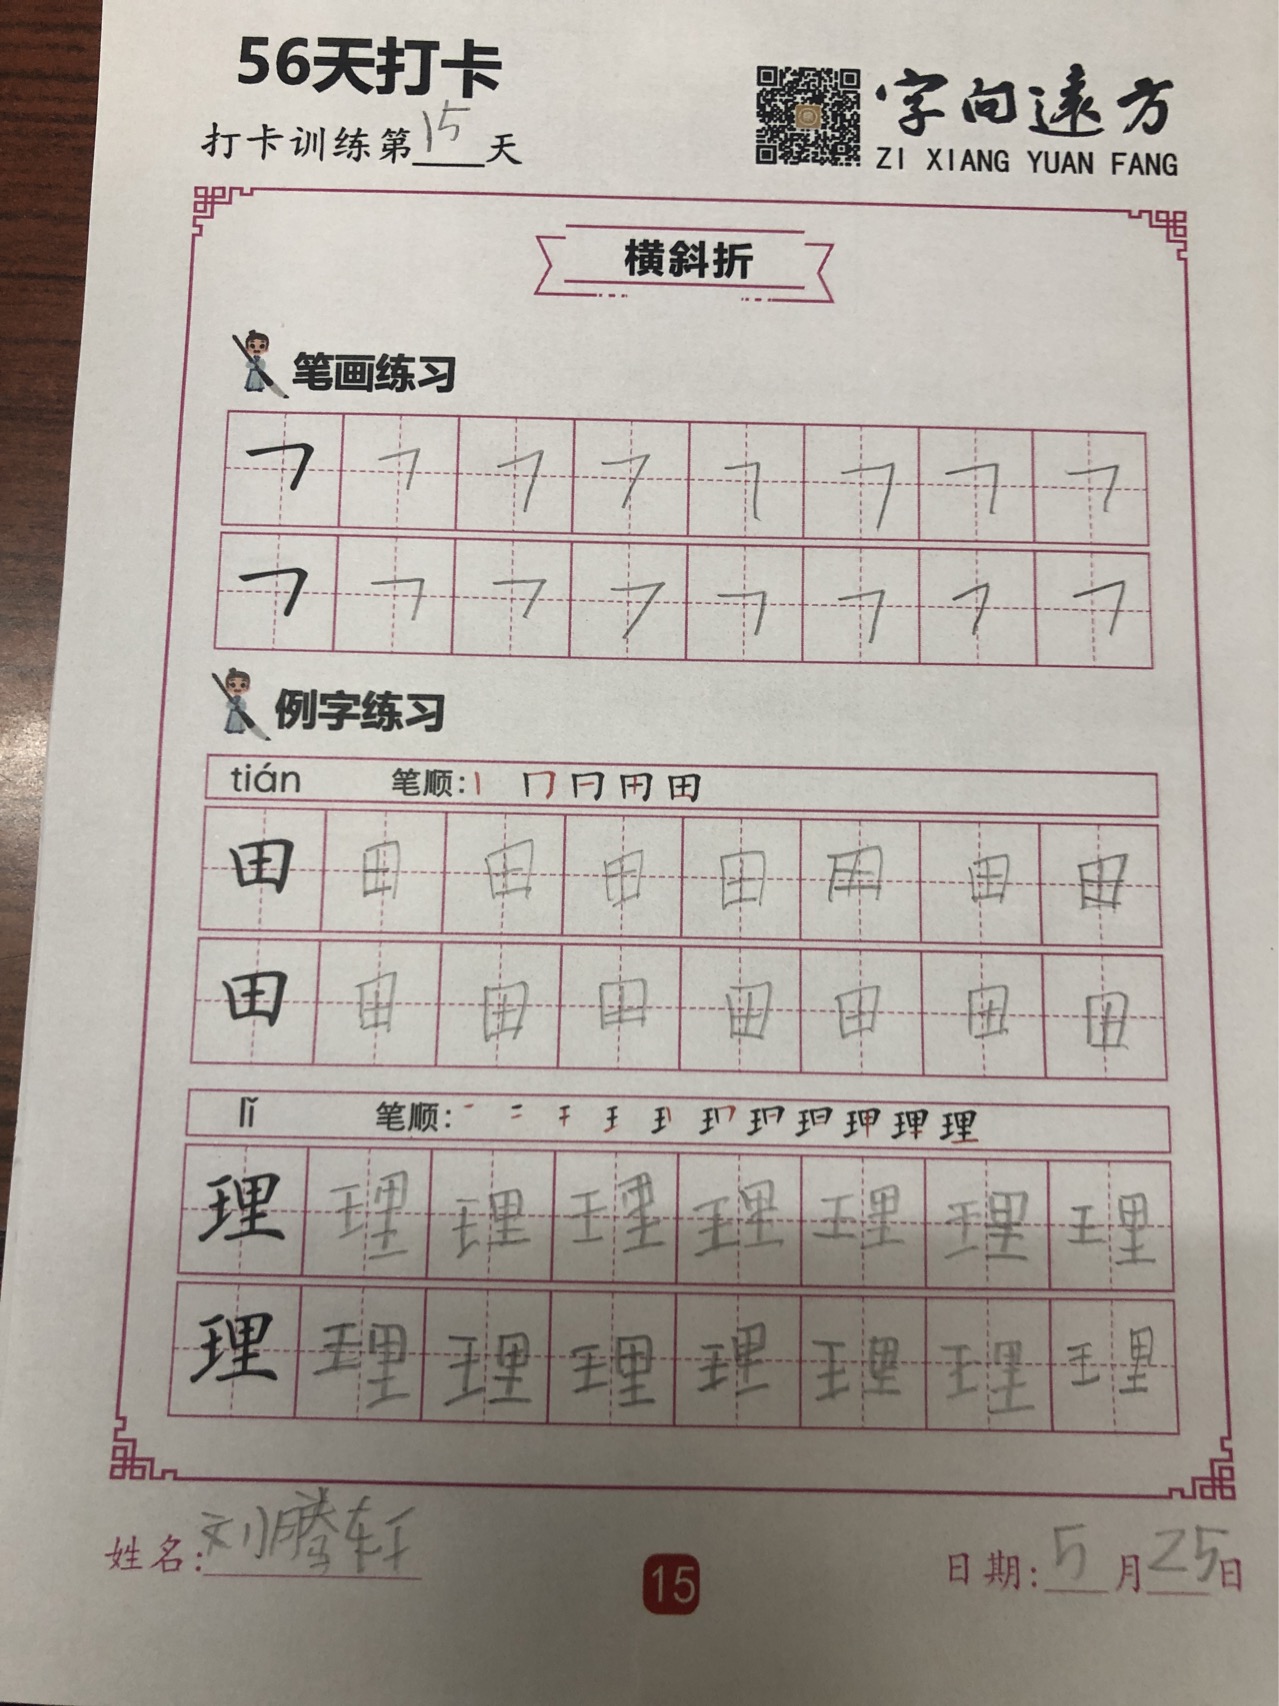 56天打卡
打卡训练第15天
字向遠方
ZI XIANG YUAN FANG
横斜折
笔画练习
㇕ ㇕ ㇕ ㇕ ㇕ ㇕ ㇕ ㇕
㇕ ㇕ ㇕ ㇕ ㇕ ㇕ ㇕ ㇕
例字练习
tián 笔顺: 丨 冂 冃 用 田
田 田 田 田 田 田 田 田
田 田 田 田 田 田 田 田
lǐ 笔顺: 理
理 理 理 理 理 理 理 理
理 理 理 理 理 理 理 理
姓名:刘腾轩
15
日期:5月25日